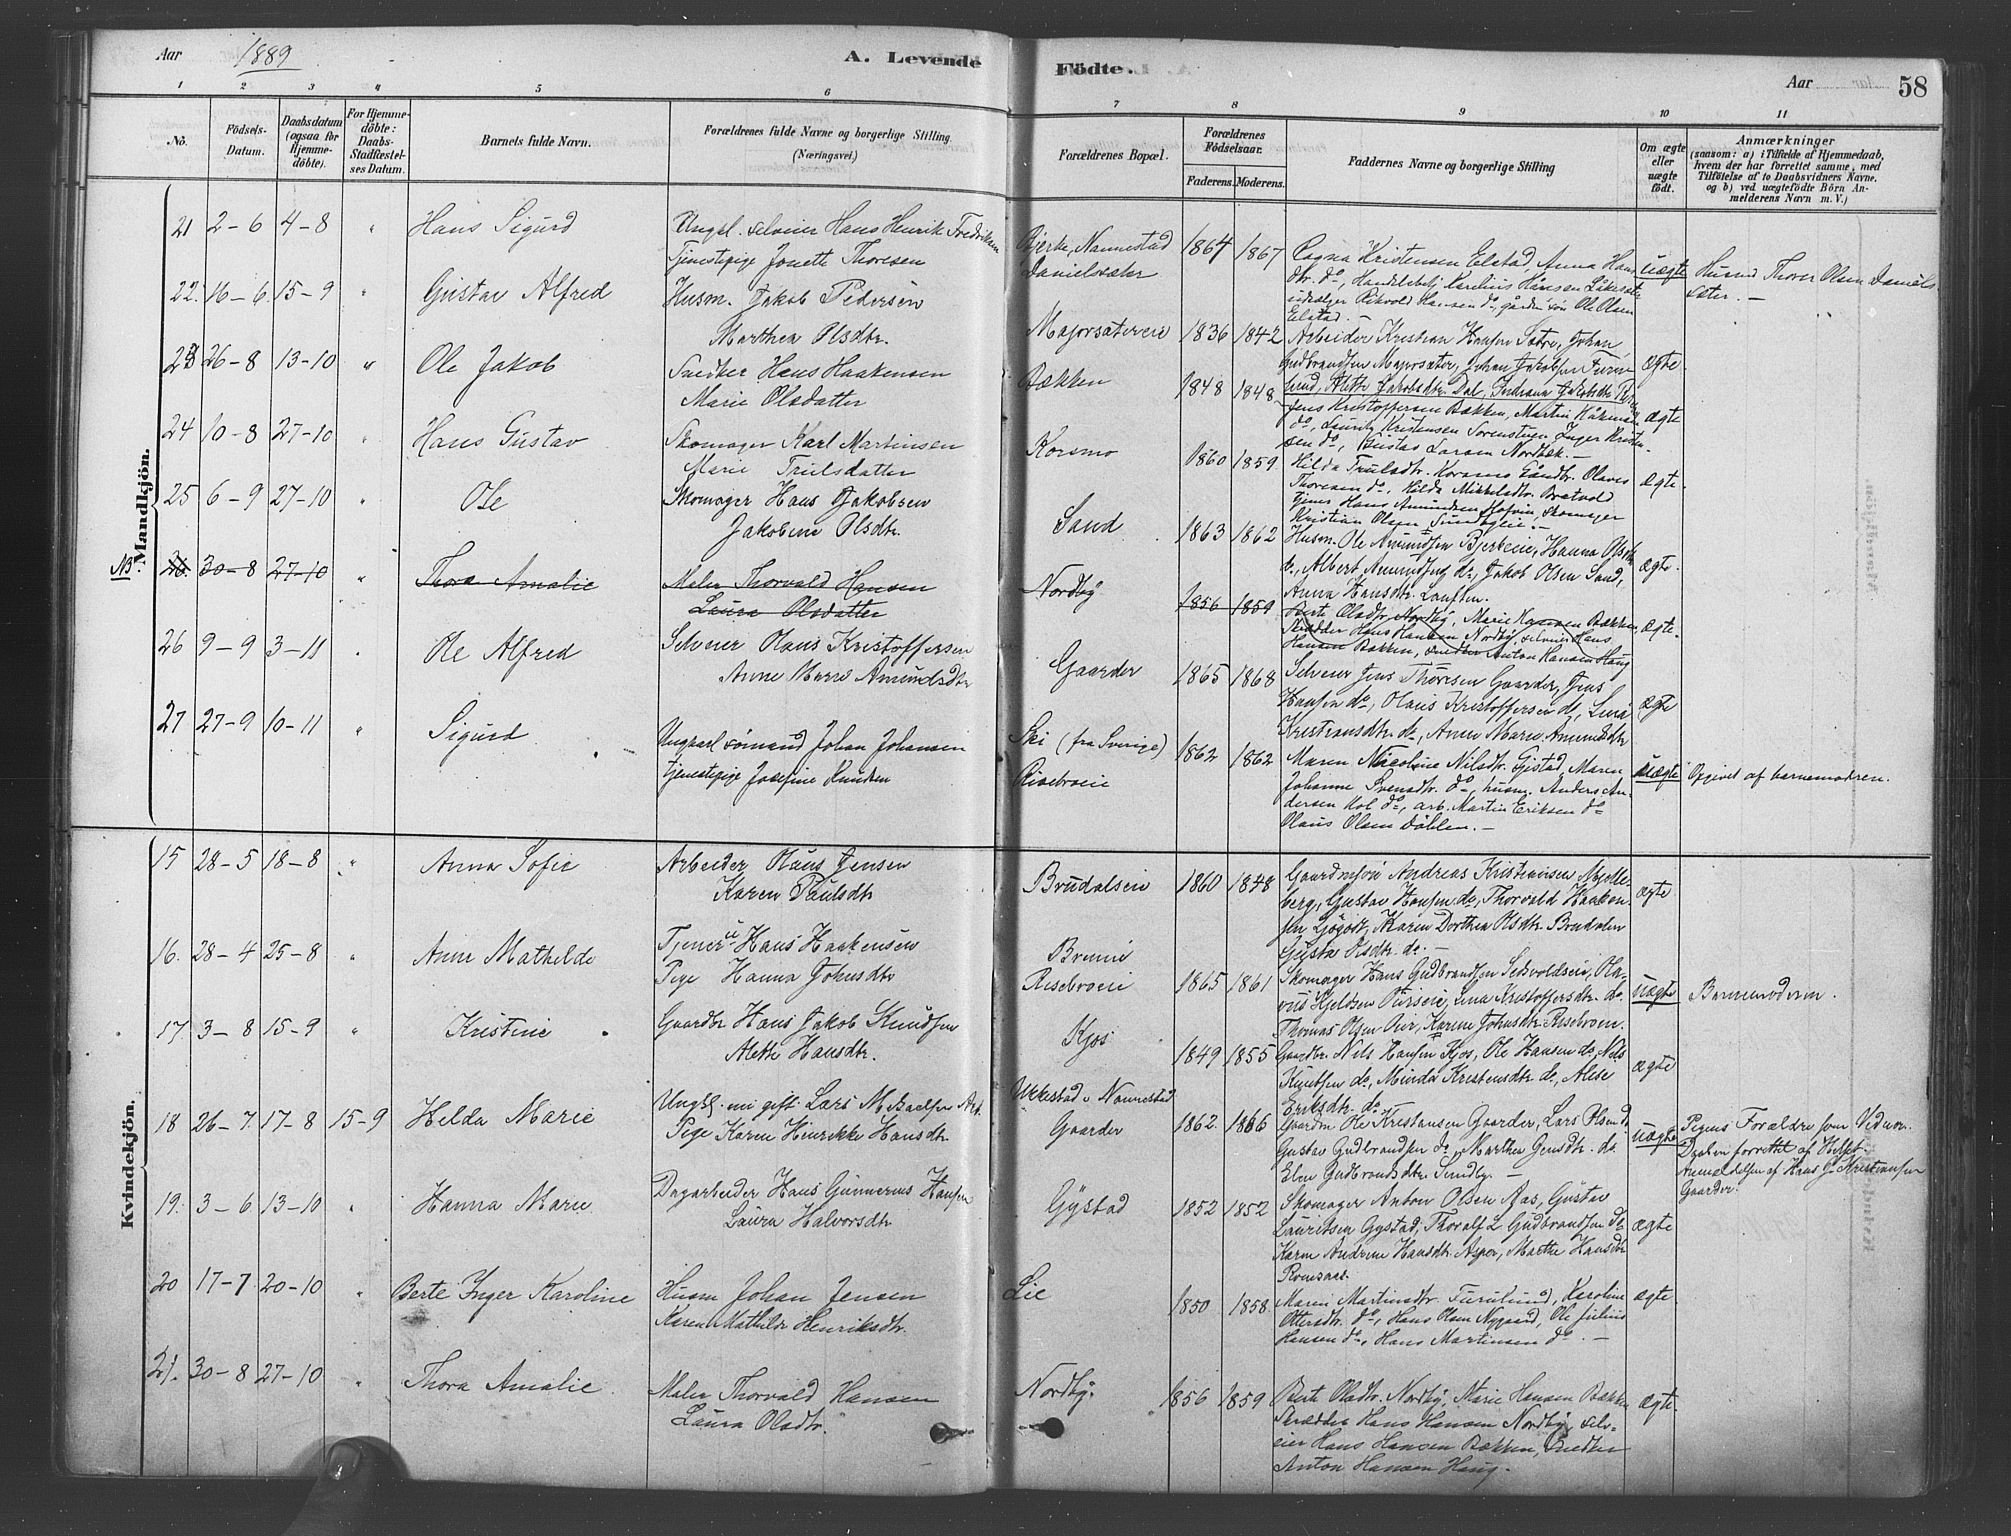 Aar 1889
A. Levende Födte.
Aar
58
1 2 3 4 5 6 7 8 9 10 11
No.
Födsels-Datum.
Daabsdatum (ogsaa for Hjemme-döbte).
For Hjemme-döbte: Daabs-Stadfæstel-ses Datum.
Barnets fulde Navn.
Forældrenes fulde Navne og borgerlige Stilling (Næringsvei.)
Forældrenes Bopæl.
Forældrenes Födselsaar.
Faderens. Moderens.
Faddernes Navne og borgerlige Stilling
Om ægte eller uægte födt.
Anmærkninger
(saasom: a) i Tilfælde af Hjemmedaab,
hvem der har forrettet samme, med
Tilföielse af to Daabsvidners Navne.
og b) ved uægtefödte Börn An-
melderens Navn m. V.)
Mandkjön.
21 2-6 4-8 " Hans Sigurd
Ungkl. selveier Hans Henrik Fredriksen
Tjenestepige Jonette Thoresen
Bjerke, Nannestad
Danielssæter
1864 1867
Ragna Kristensen Elstad, Anna Hans
dtr. do, Handelsbetj. Karelius Hansen
Hansen do, gårdm. søn Ole Olsen
Elstad. —
uægte
Husmd Thorer Olsen Daniels
sæter. —
22. 16-6 15-9 " Gustav Alfred
Husm. Jakob Pedersen
Marthea Olsdtr.
Majorsætereie 1836 1842
Arbeider Kristian Hansen Sætre, Johan
Gudbrandsen Majorsæter, Johan Jakobsen Furu-
lund, Alette Jakobsdtr. Dal, Indiana Jakobsdtr.
ægte.
23 26-8 13-10 " Ole Jakob
Snedker Hans Haakensen
Marie Olsdatter
Bækken 1848 1848
Jens Kristoffersen Bækken, Martin Håkensen
do, Lauritz Kristensen Sorenstuen, Inger Kristen-
sen do, Gustav Larsen Nordbek. —
ægte
24 10-8 27-10 " Hans Gustav
Skomager Karl Martinsen
Marie Trulsdatter
Korsmo 1860 1859
Hilda Trulsdtr. Korsmo, Olaves
Thoresen do, Hilda Mikkelsdtr. Bratvold
tjener Hans Amundsen Hofvin, skomager
Kristian Olsen Sundbyeie. —
ægte.
25 6-9 27-10 " Ole
Skomager Hans Jakobsen
Jakobine Olsdtr.
Sand 1863 1862
Husm. Ole Amundsen Bjerkeie, Hanna Olsdtr
do, Albert Amundsen do, Jakob Olsen Sand,
Anna Hansdtr. Lauften.
ægte.
NB. 26. 30-8 27-10 " Thora Amalie
Maler Thorvald Hansen
Laura Olsdatter
Nordby 1856 1859
Berte Olsdtr. Nordby, Marie Hansen Bækken,
Skrædder Hans Hansen Nordby, selveier Hans
Hansen Bækken, snedker Anton Hansen Haug
ægte.
26 9-9 3-11 " Ole Alfred
Selveier Olaus Kristoffersen
Anne Marie Amundsdtr
Gaarder 1865 1868
Selveier Jens Thoresen Gaarder, Jens
Hansen do, Olaus Kristoffersen do, Lina
Kristiansdtr do, Anne Marie Amundsdtr
ægte
27 27-9 10-11 " Sigurd
Ungkarl sømand Johan Johansen
tjenestepige Josefine Knudsen
Ski (fra Sverige)
Risebroeie
1862 1862
Maren Nicoline Nilsdtr. Gjestad, Maren
Johanne Svensdtr. do, husm. Anders An-
dersen Kol do, arb. Martin Eriksen do
Olaus Olsen Døhlen. —
uægte
Opgivet af barnemoderen.
Kvindekjön.
15 28-5 18-8 " Anna Sofie
Arbeider Olaus Jensen
Karen Paulsdtr
Brudalseie 1860 1848
Gaardmsøn Andreas Kristiansen Mjølle-
berg, Gustav Hansen do, Thorvald Haaken-
sen Løgost, Karen Dorthea Olsdtr. Brudalen
Gusta Olsdtr. do. —
ægte
16. 28-4 25-8 " Anne Mathilde
Tjener u Hans Haakensen
Pige Hanna Johnsdtr
Brennie
Risebroeie
1865 1861
Skomager Hans Gudbrandsen Seksvoldseie, Ola-
vus Kjeldsen Ourseie, Lina Kristoffersdtr. do.
Thomas Olsen Oier, Karen Johnsdtr. Risebroen.
uægte
Barnemoderen.
17. 3-8 15-9 " Kristine
Gaardbr Hans Jakob Knudsen
Alette Hansdtr.
Kjos 1849 1855
Gaardbr. Nils Hansen Kjos, Ole Hansen do, Nils
Knutsen do, Minda Kristensdtr do, Alise
Eriksdtr. do.
ægte
18 26-7. 17-8 15-9 Helda Marie
Ungkl. mi gift. Lars Mikaelsen Arb.
Pige Karen Henrikke Hansdtr
Ukkestad i Nannestad
Gaarder
1862. 1865
Gaardm Ole Kristiansen Gaarder, Lars Olsen do
Gustav Gudbrandsen do, Marthea Jensdtr. do.
Elen Gudbrandsdtr. Sundby. —
uægte
Pigens Forældre som Vidner.
Daaben forrettet af Hilset.
Anmeldelsen af Hans J. Kristiansen
Gaarder.
19. 3-6 13-10 " Hanna Marie
Dagarbeider Hans Gunnerius Hansen
Laura Halvorsdtr
Gystad 1852 1852
Skomager Anton Olsen Aas, Gustav
Lauritsen Gystad, Thoralf L Gudbrandsen do
Karen Andrine Hansdtr. Asper, Marthe Hansdtr
Romsaas.
ægte
20 17-7 20-10 " Berte Inger Karoline
Husm Johan Jensen
Karen Mathilde Henriksdtr.
Lie 1850 1858
Maren Martinsdtr. Furulund, Karoline
Ottersdtr. do, Hans Olsen Nygaard, Ole Julius
Hansen do, Hans Martinsen do. —
ægte.
21. 30-8 27-10 " Thora Amalie
Maler Thorvald Hansen
Laura Olsdtr.
Nordby. 1856 1859
Berte Olsdtr. Nordby, Marie Hansen Bækken
Skrædder Hans Hansen Nordby, selv-
eier Hans Hansen Bækken, Snedker
Anton Hansen Haug.
ægte.